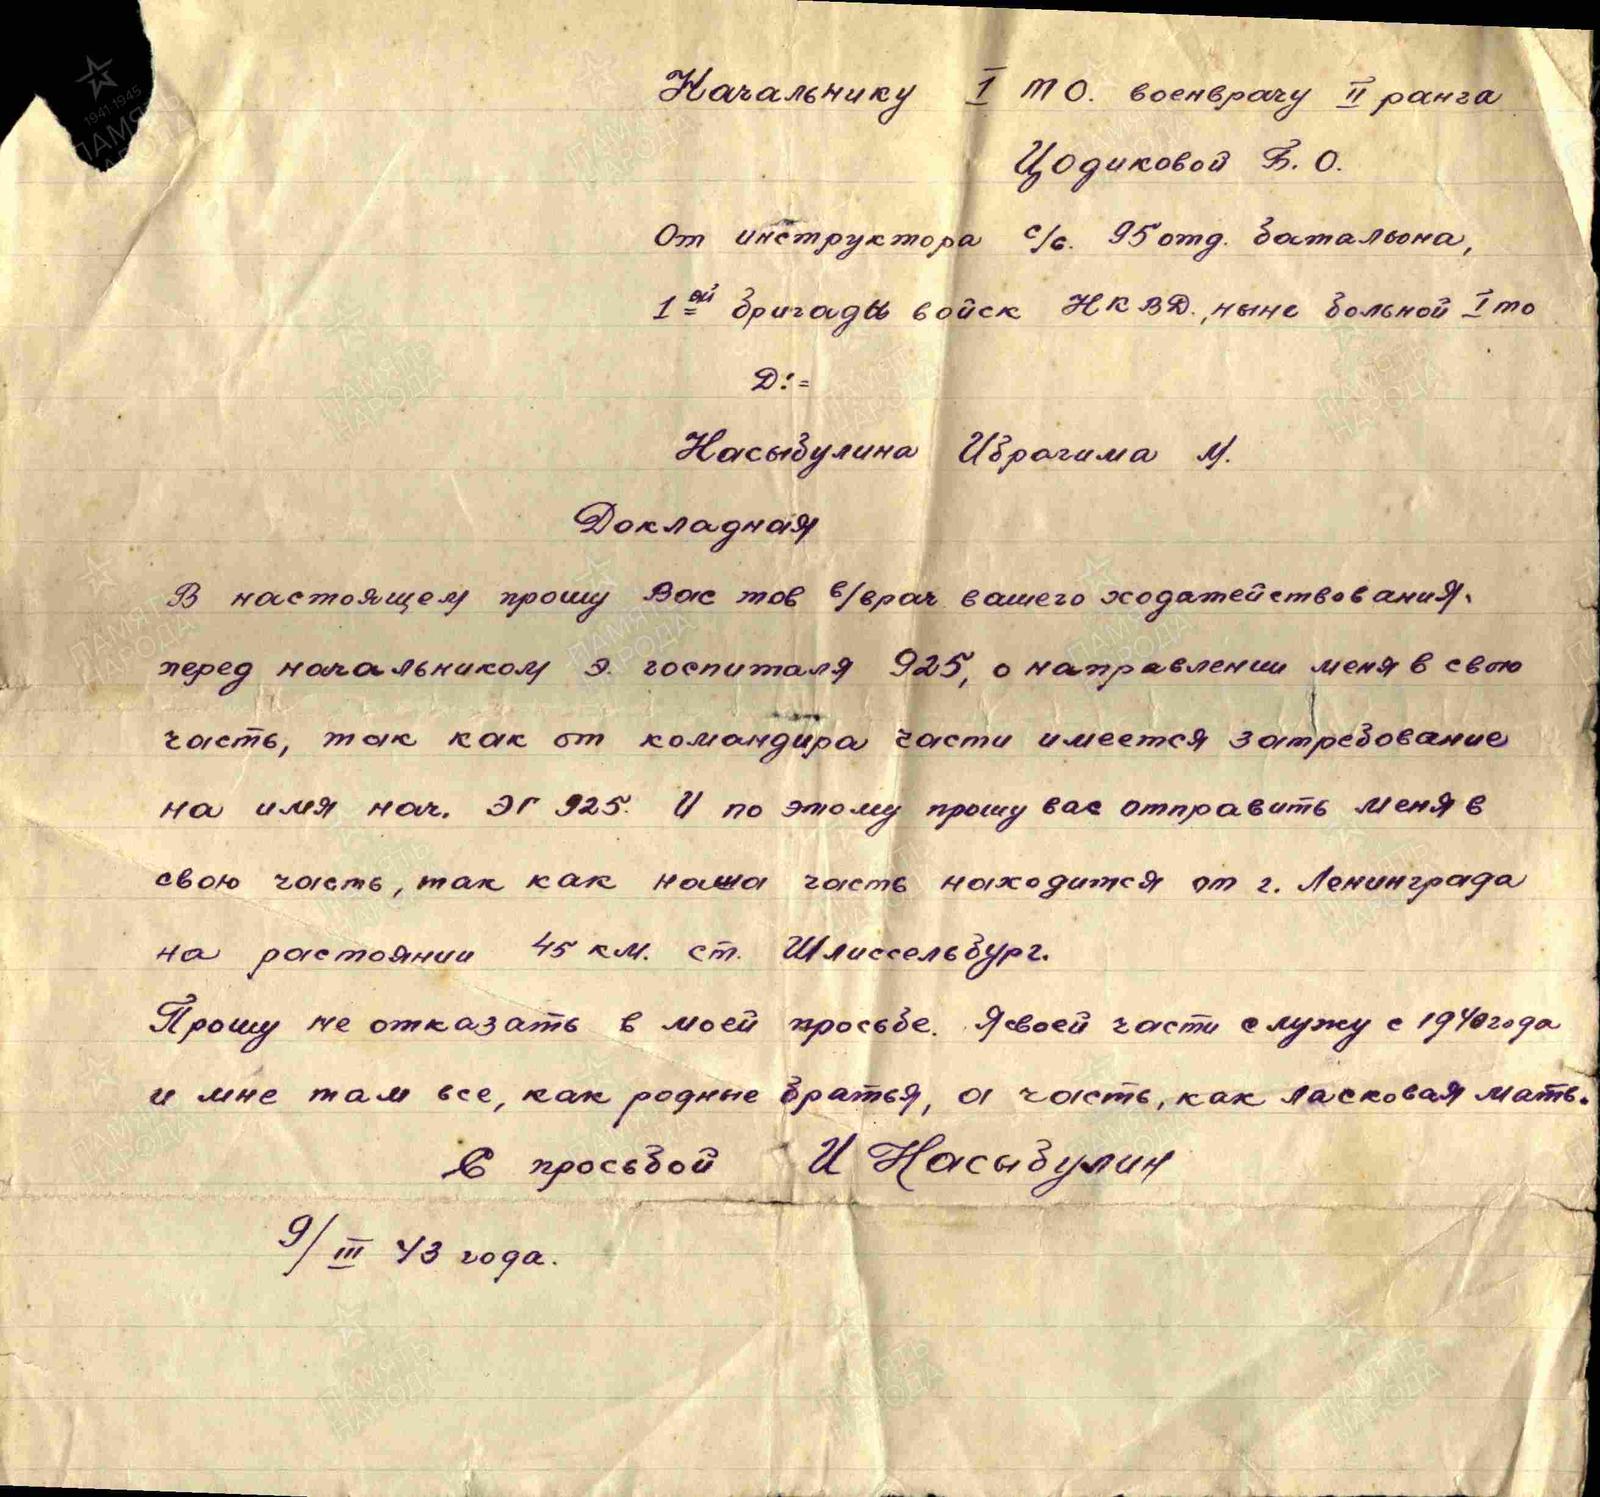 Начальнику I ТО. военврачу II ранга
Цодиковой Б. О.
От инструктора с/с. 95 отд. батальона,
1ой бригады войск НКВД., ныне больной I то
Д:=
Насыбулина Ибрагима М.
Докладная
В настоящем прошу Вас тов в/врач вашего ходатействования.
перед начальником э. госпиталя 925, о направлении меня в свою
часть, так как от командира части имеется затребование
на имя нач. ЭГ 925. И по этому прошу вас отправить меня в
свою часть, так как наша часть находится от г. Ленинграда
на растоянии 45 км. ст. Шлиссельбург.
Прошу не отказать в моей просьбе. Я своей части служу с 1940 года
и мне там все, как родные братья, а часть, как ласковая мать.
С просьбой И Насыбулин
9/III 43 года.
1941-1945
ПАМЯТЬ
НАРОДА